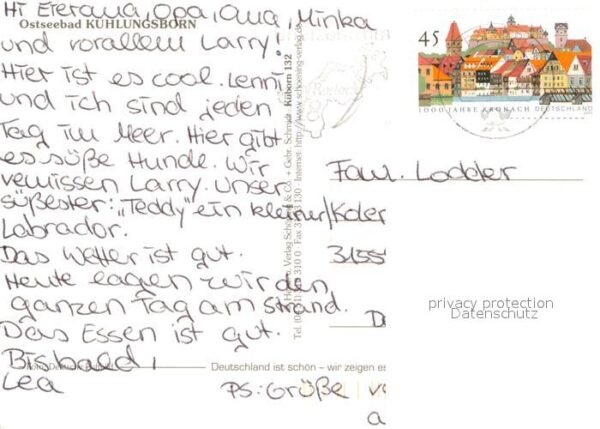 Hi Eterama, Opa, Oma, Minka
Ostseebad KÜHLUNGSBORN
und vorallem Larry.
Hier ist es cool. Lenni
und ich sind jeden
Tag im Meer. Hier gibt
es süße Hunde. Wir
vemissen Larry. Unser
süßester: „Teddy" ein kleiner
Labrador.
Das Wetter ist gut.
Heute lagen wir den
ganzen Tag am Strand.
Das Essen ist gut.
Bisbald,
Lea
PS: Größe
Deutschland ist schön – wir zeigen es
Verlag Schöning & Co. + Gebr. Schmidt Küborn 132
Internet: http://www.schoening-verlag.de
45
1000 JAHRE KRONACH DEUTSCHLAND
Fam. Lodder
privacy protection
Datenschutz